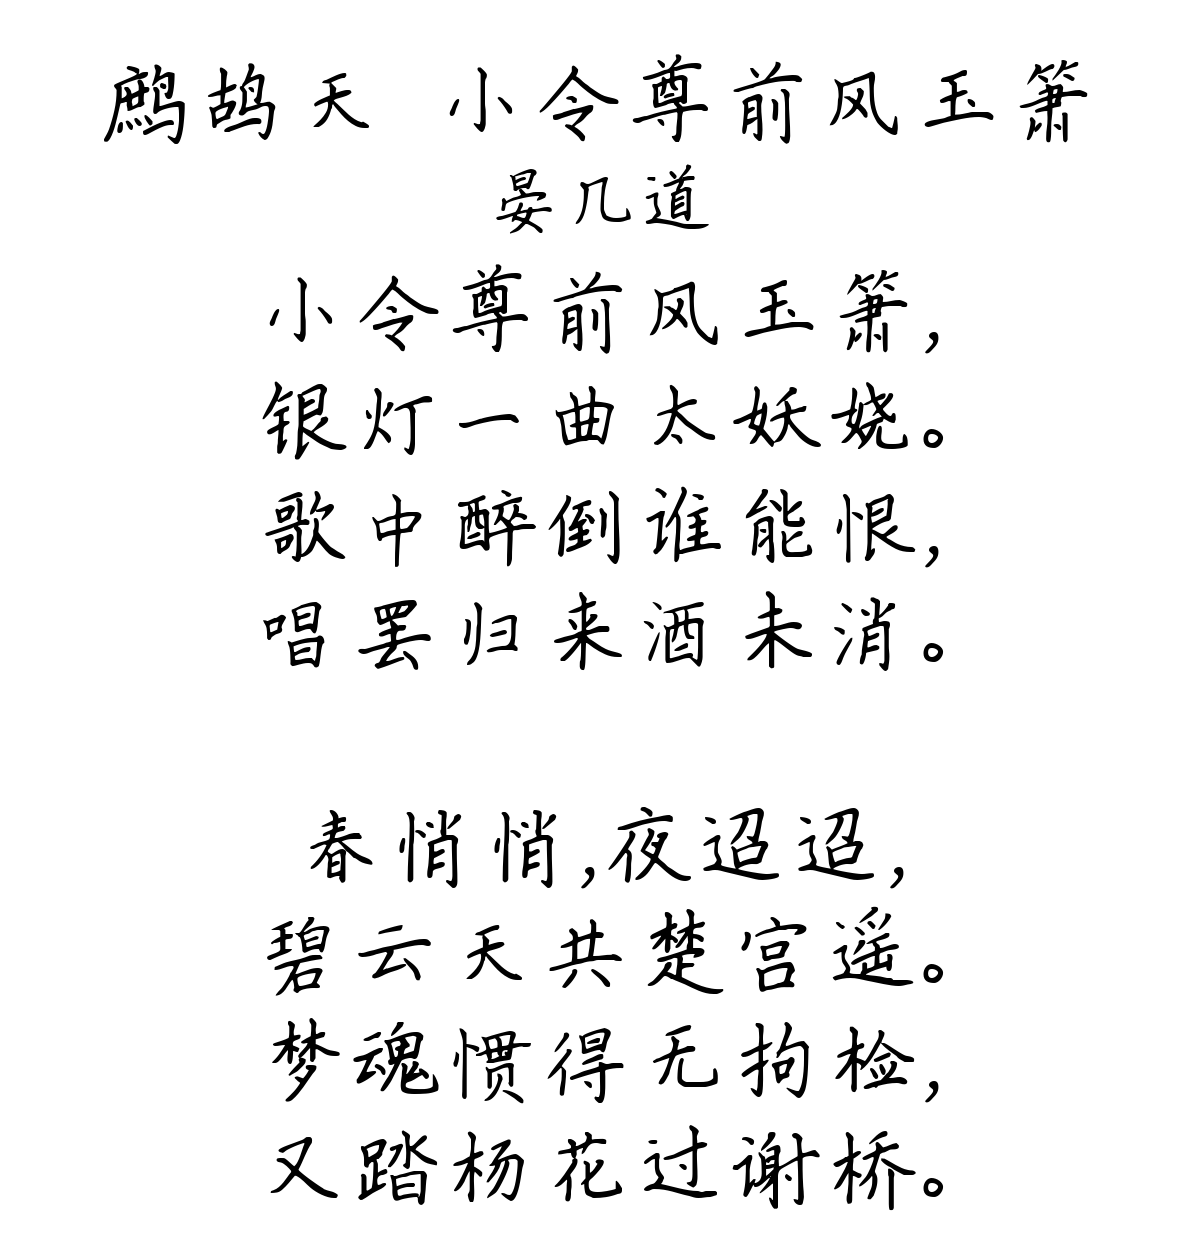 鹧鸪天 小令尊前风玉箫
晏几道
小令尊前风玉箫,
银灯一曲太妖娆。
歌中醉倒谁能恨,
唱罢归来酒未消。
春悄悄,夜迢迢,
碧云天共楚宫遥。
梦魂惯得无拘检,
又踏杨花过谢桥。